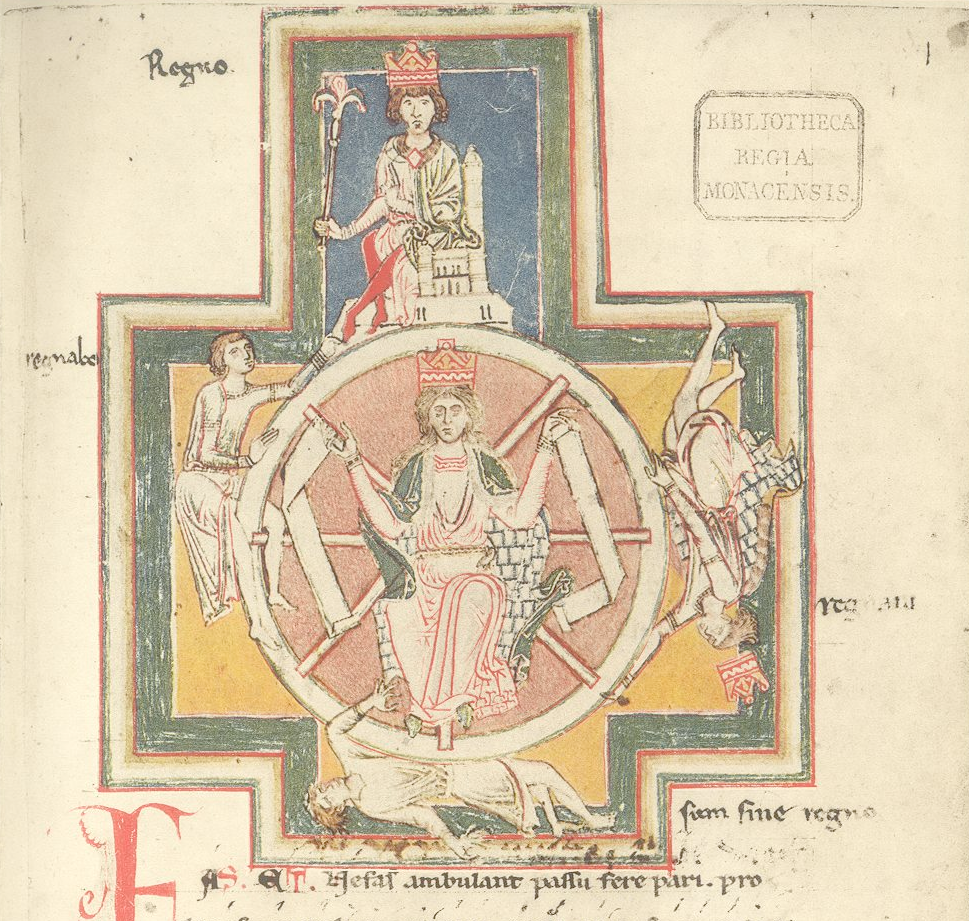 Regno.
BIBLIOTHECA
REGIA
MONACENSIS.
regnabo
regnaui
sum sine regno
FAS. ET. Nefas ambulant passu fere pari. pro